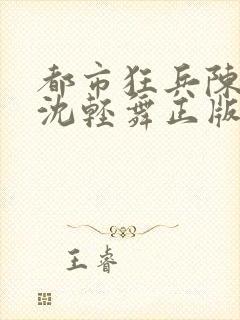 都市狂兵陳
沈輕舞正版
王睿